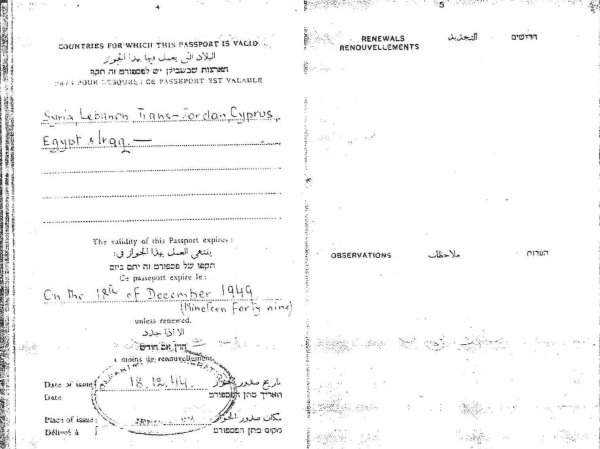 4
COUNTRIES FOR WHICH THIS PASSPORT IS VALID
البلاد التي يعمل فيها بهذا الجواز
הארצות שבשבילן יש לפספורט זה תקף
PAYS POUR LESQUELS CE PASSEPORT EST VALABLE
Syria Lebanon Trans-Jordan, Cyprus,
Egypt & Iraq. —
The validity of this Passport expires:
ينتهي العمل بهذا الجواز في:
תקפו של פספורט זה יתם ביום
Ce passeport expire le:
On the 18th of December 1949
(Nineteen forty nine)
unless renewed.
الا اذا جدد
חוץ אם חודש
à moins de renouvellement.
Date of issue 18.12.44. تاريخ صدور الجواز
Date תאריך מתן הפספורט
Place of issue مكان صدور الجواز
Délivré à מקום מתן הפספורט
5
RENEWALS التجديد חדושים
RENOUVELLEMENTS
OBSERVATIONS ملاحظات הערות